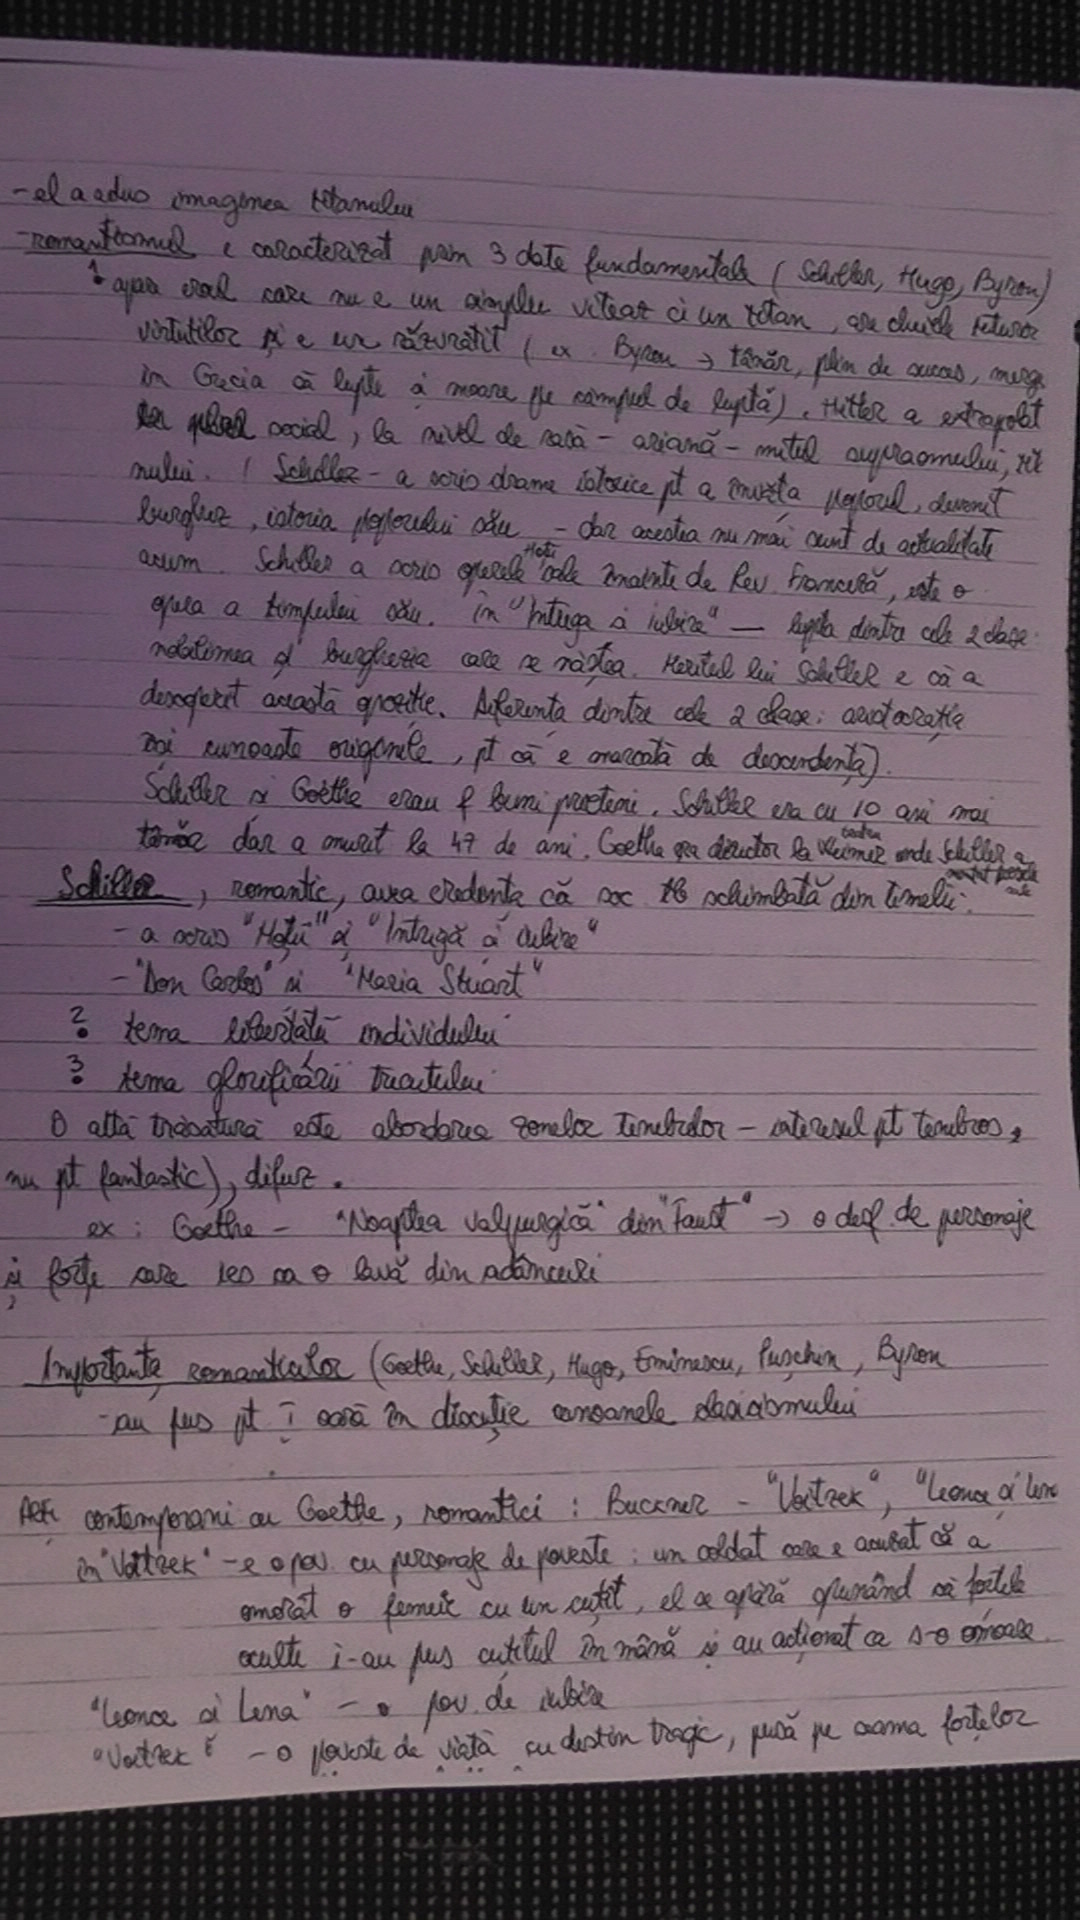 - el a adus imaginea titanului
- romantismul e caracterizat prin 3 date fundamentale (Schiller, Hugo, Byron)
1. apare eroul care nu e un simplu viteaz ci un titan, are cheile tuturor
virtuților și e un răzvrătit (ex. Byron → tânăr, plin de succes, merge
în Grecia să lupte și moare pe câmpul de luptă). Hitler a extrapolat
planul social, la nivel de rasă - ariană - mitul supraomului, tit
nului. (Schiller - a scris drame istorice pt a învăța poporul, devenit
burghez, istoria poporului său - dar acestea nu mai sunt de actualitate
acum. Schiller a scris operele Hoții sale înainte de Rev. Franceză, este o
opera a timpului său. În "Intriga și iubire" — lupta dintre cele 2 clase:
nobilimea și burghezia care se năștea. Meritul lui Schiller e că a
descoperit această opoziție. Diferența dintre cele 2 clase: aristocrația
își cunoaște originile, pt că e marcată de descendență).
Schiller și Goethe erau f buni prieteni. Schiller era cu 10 ani mai
tânăr dar a murit la 47 de ani. Goethe era director la Weimer unde Schiller a
Schiller, romantic, avea credența că soc. tb schimbată din temelii.
- a scris "Hoții" și "Intrigă și iubire"
- "Don Carlos" și "Maria Stuart"
2. tema libertății individului
3. tema glorificării trecutului
O altă trăsătură este abordarea zonelor tenebrelor - interesul pt tenebros,
nu pt fantastic), difuz.
ex: Goethe - "Noaptea valpurgică" din "Faust" → o desf. de personaje
și forțe care ies ca o lavă din adâncuri
Importanța romanticilor (Goethe, Schiller, Hugo, Eminescu, Puschin, Byron
- au pus pt I oară în discuție canoanele clasicismului
Alți contemporani cu Goethe, romantici: Buckner - "Voitzek", "Leonce și Lena
în "Voitzek" - e o pov. cu personaje de poveste: un soldat care e acuzat că a
omorât o femeie cu un cuțit, el se apără spunând că forțele
oculte i-au pus cuțitul în mână și au acționat ca s-o omoare.
"Leonce și Lena" - o pov. de iubire
"Voitzek" - o poveste de viață cu destin tragic, pusă pe seama forțelor